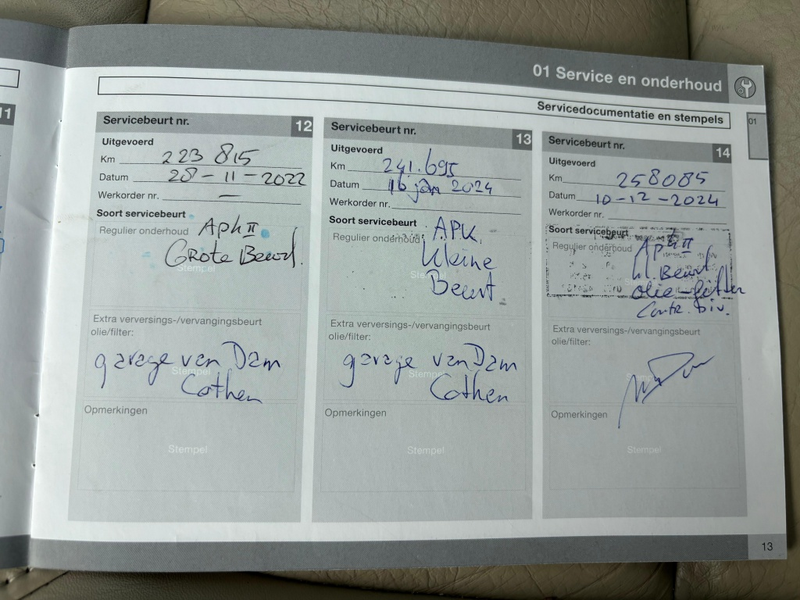 01 Service en onderhoud
Servicedocumentatie en stempels
01
11
Servicebeurt nr. 12
Uitgevoerd
Km 223 815
Datum 28-11-2022
Werkorder nr. —
Soort servicebeurt
Regulier onderhoud
Apk II
Grote Beurt.
Stempel
Extra verversings-/vervangingsbeurt
olie/filter:
garage van Dam
Cothen
Stempel
Opmerkingen
Stempel
Servicebeurt nr. 13
Uitgevoerd
Km 241.695
Datum 16 jan 2024
Werkorder nr.
Soort servicebeurt
Regulier onderhoud
APK
kleine
Beurt.
Stempel
Extra verversings-/vervangingsbeurt
olie/filter:
garage van Dam
Cothen
Stempel
Opmerkingen
Stempel
Servicebeurt nr. 14
Uitgevoerd
Km 258085
Datum 10-12-2024
Werkorder nr.
Soort servicebeurt
Regulier onderhoud
Apk II
kl. Beurt
olie-filter
Contr. Div.
Extra verversings-/vervangingsbeurt
olie/filter:
Stempel
Opmerkingen
Stempel
13